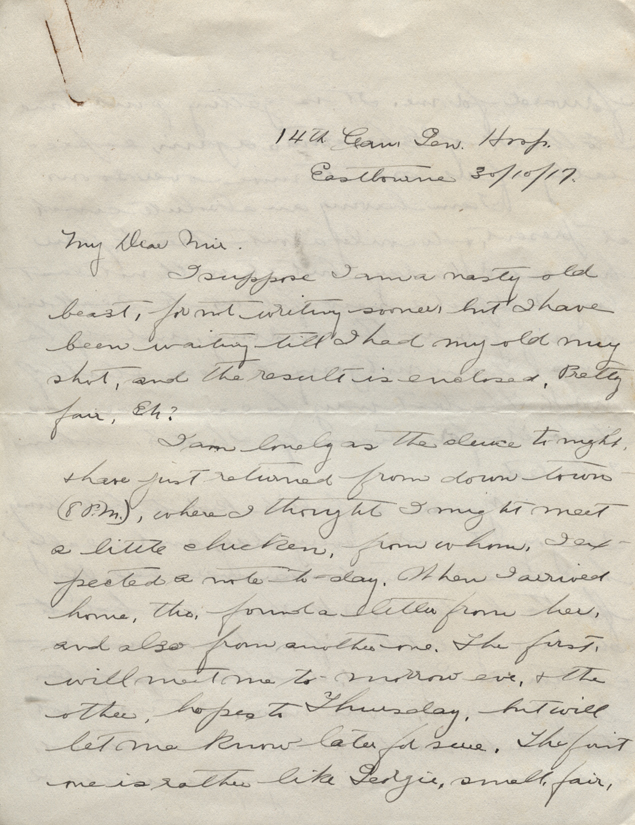 14th Can. Gen. Hosp.
Eastbourne 30/10/17.
My Dear Mir.
I suppose I am a nasty old
beast, for not writing sooner, but I have
been waiting till I had my old mug
shot, and the result is enclosed. Pretty
fair, Eh?
I am lonely as the deuce to night,
& have just returned from down town
(8 P.M.), where I thought I might meet
a little chicken, from whom, I ex-
pected a note to-day. When I arrived
home, tho, found a letter from her,
and also from another one. The first,
will meet me to-morrow eve, & the
other, hopes to Thursday, but will
let me know later for sure. The first
one is rather like Georgie, small, fair,